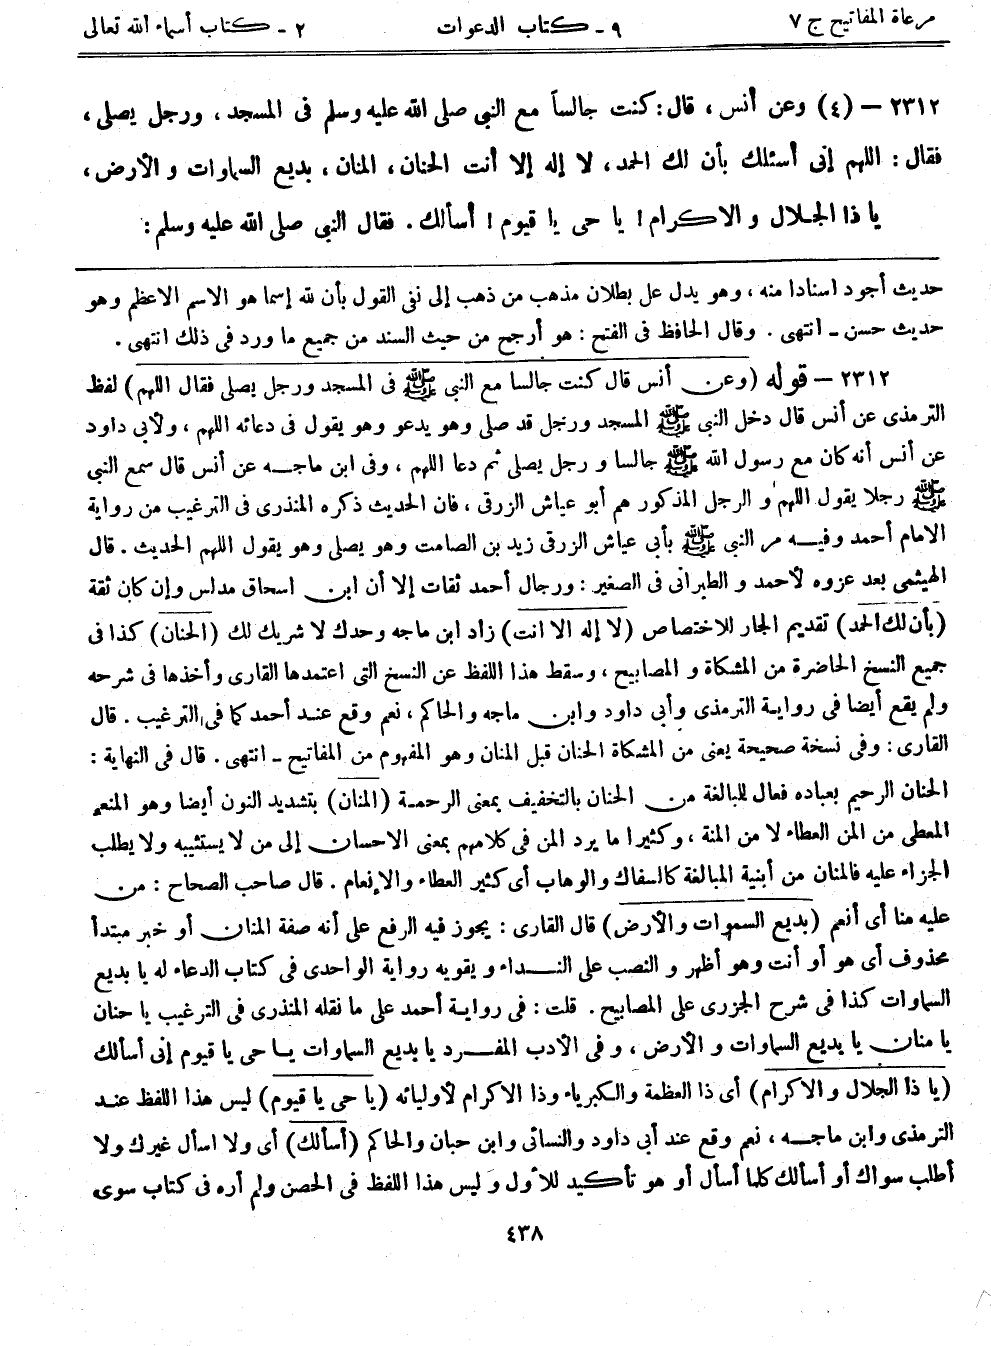 مرعاة المفاتيح ج ٧
٩ ـ كتاب الدعوات
٢ ـ كتاب أسماء الله تعالى
٢٣١٢ – (٤) وعن أنس، قال: كنت جالساً مع النبي صلى الله عليه وسلم فى المسجد، ورجل يصلى،
فقال: اللهم إنى أسئلك بأن لك الحمد، لا إله إلا أنت الحنان، المنان، بديع السماوات و الأرض،
يا ذا الجلال و الاكرام! يا حى يا قيوم! أسألك. فقال النبي صلى الله عليه وسلم:
حديث أجود اسنادا منه، وهو يدل على بطلان مذهب من ذهب إلى نفى القول بأن لله إسما هو الاسم الاعظم وهو
حديث حسن ـ انتهى. وقال الحافظ فى الفتح: هو أرجح من حيث السند من جميع ما ورد فى ذلك انتهى.
٢٣١٢ – قوله (وعن أنس قال كنت جالسا مع النبي ﷺ فى المسجد ورجل يصلى فقال اللهم) لفظ
الترمذى عن أنس قال دخل النبي ﷺ المسجد ورجل قد صلى وهو يدعو وهو يقول فى دعائه اللهم، ولأبى داود
عن أنس أنه كان مع رسول الله ﷺ جالسا و رجل يصلى ثم دعا اللهم، وفى ابن ماجه عن أنس قال سمع النبي
ﷺ رجلا يقول اللهم و الرجل المذكور هم أبو عياش الزرقى، فان الحديث ذكره المنذرى فى الترغيب من رواية
الامام أحمد وفيه مر النبي ﷺ بأبى عياش الزرقى زيد بن الصامت وهو يصلى وهو يقول اللهم الحديث. قال
الهيثمى بعد عزوه لأحمد و الطبرانى فى الصغير: ورجال أحمد ثقات إلا أن ابن اسحاق مدلس وإن كان ثقة
(بأن لك الحمد) تقديم الجار للاختصاص (لا إله الا انت) زاد ابن ماجه وحدك لا شريك لك (الحنان) كذا فى
جميع النسخ الحاضرة من المشكاة و المصابيح، وسقط هذا اللفظ عن النسخ التى اعتمدها القارى وأخذها فى شرحه
ولم يقع أيضا فى رواية الترمذى وأبى داود وابن ماجه والحاكم، نعم وقع عند أحمد كما فى الترغيب. قال
القارى: وفى نسخة صحيحة يعنى من المشكاة الحنان قبل المنان وهو المفهوم من المفاتيح ـ انتهى. قال فى النهاية:
الحنان الرحيم بعباده فعال للمبالغة من الحنان بالتخفيف بمعنى الرحمة (المنان) بتشديد النون أيضا وهو المنعم
المعطى من المن العطاء لا من المنة، وكثيرا ما يرد المن فى كلامهم بمعنى الاحسان إلى من لا يستثيبه ولا يطلب
الجزاء عليه فالمنان من أبنية المبالغة كالسفاك والوهاب أى كثير العطاء والإنعام. قال صاحب الصحاح: من
عليه منا أى أنعم (بديع السموات و الأرض) قال القارى: يجوز فيه الرفع على أنه صفة المنان أو خبر مبتدأ
محذوف أى هو أو أنت وهو أظهر و النصب على النداء و يقويه رواية الواحدى فى كتاب الدعاء له يا بديع
السماوات كذا فى شرح الجزرى على المصابيح. قلت: فى رواية أحمد على ما نقله المنذرى فى الترغيب يا حنان
يا منان يا بديع السماوات و الأرض، و فى الأدب المفرد يا بديع السماوات يا حى يا قيوم إنى أسألك
(يا ذا الجلال و الاكرام) أى ذا العظمة والكبرياء وذا الاكرام لأوليائه (يا حى يا قيوم) ليس هذا اللفظ عند
الترمذى وابن ماجه، نعم وقع عند أبى داود والنسائى وابن حبان والحاكم (أسألك) أى ولا اسأل غيرك ولا
أطلب سواك أو أسألك كلما أسأل أو هو تأكيد للأول و ليس هذا اللفظ فى الحصن ولم أره فى كتاب سوى
٤٣٨